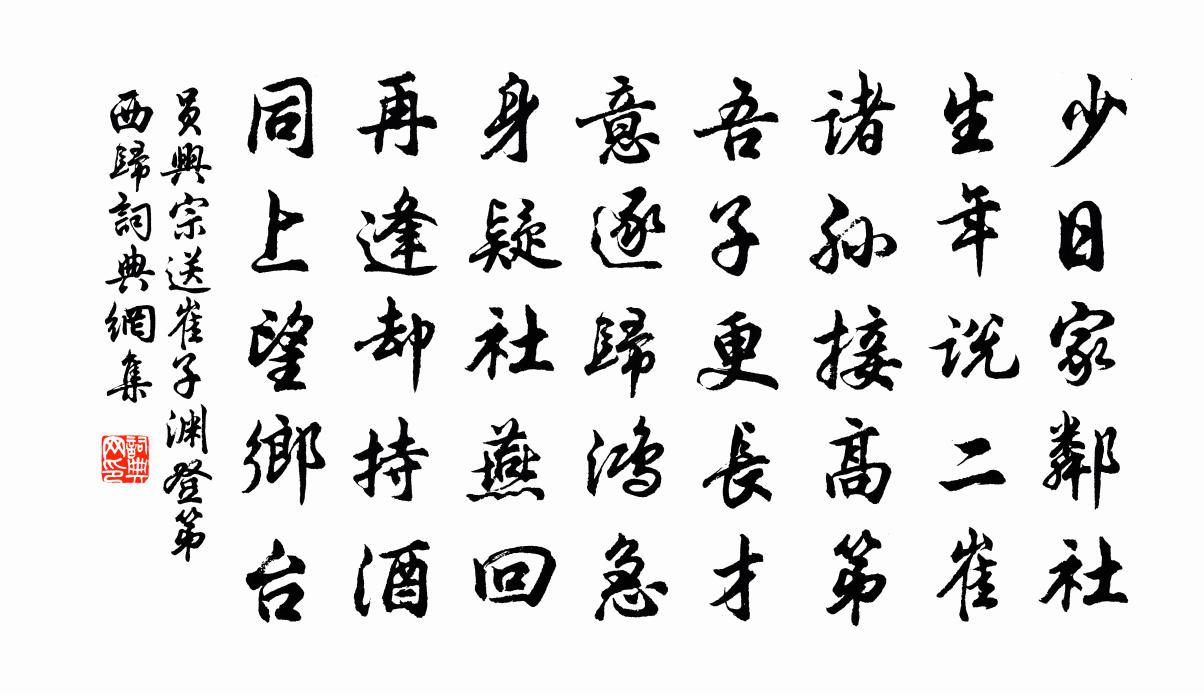 少日家鄰社
生年说二崔
諸孫接高第
吾子更長才
意逐歸鴻急
身疑社燕回
再逢却持酒
同上望鄉台
員興宗送崔子淵登第
西歸詞典網集
詞典网印